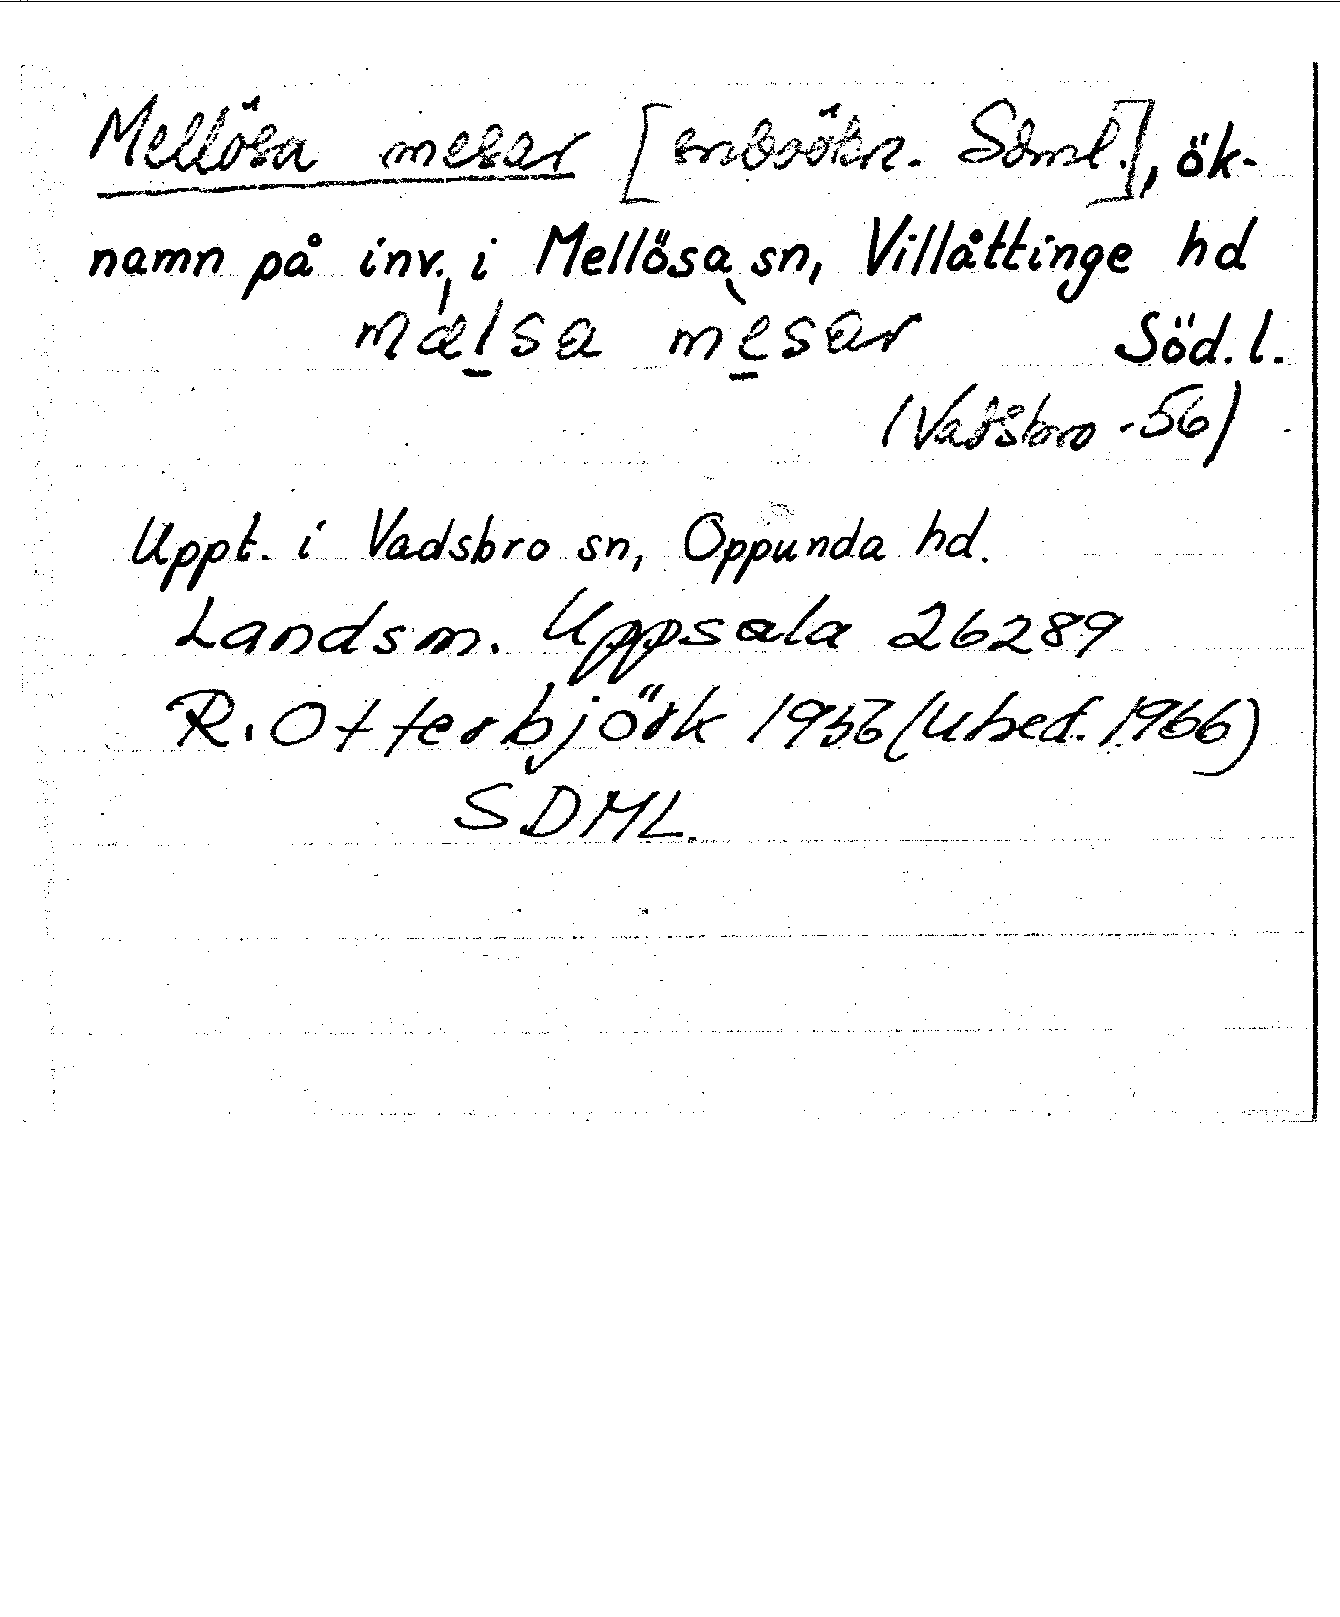 Mellösa mesar [snbsökn. Sdml.], ök-
namn på inv. i Mellösa sn, Villåttinge hd
mælsa mesar Söd. l.
(Vadsbro -56)
Uppt. i Vadsbro sn, Oppunda hd.
Landsm. Uppsala 26289
R. Otterbjörk 1956 (Ubed. 1966)
SDML.